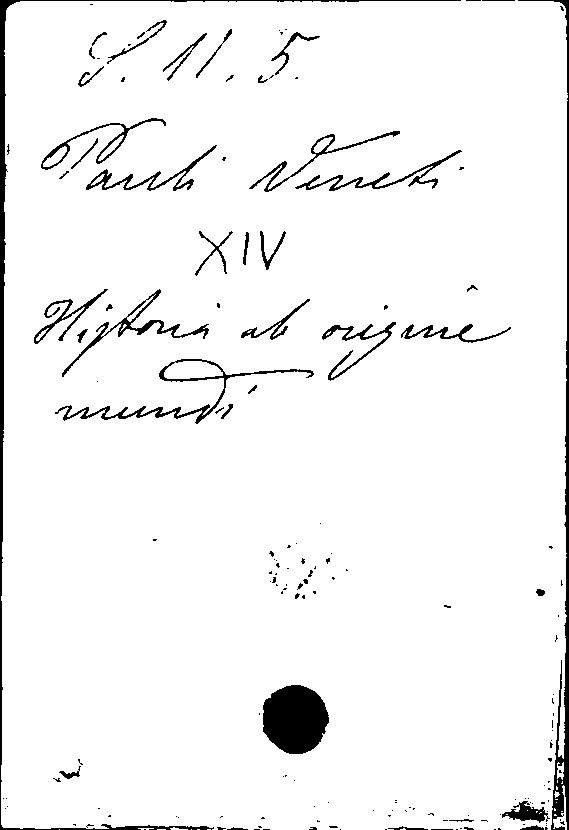 S. 11. 5.
Pauli Veneti
XIV
Historia ab origine
mundi